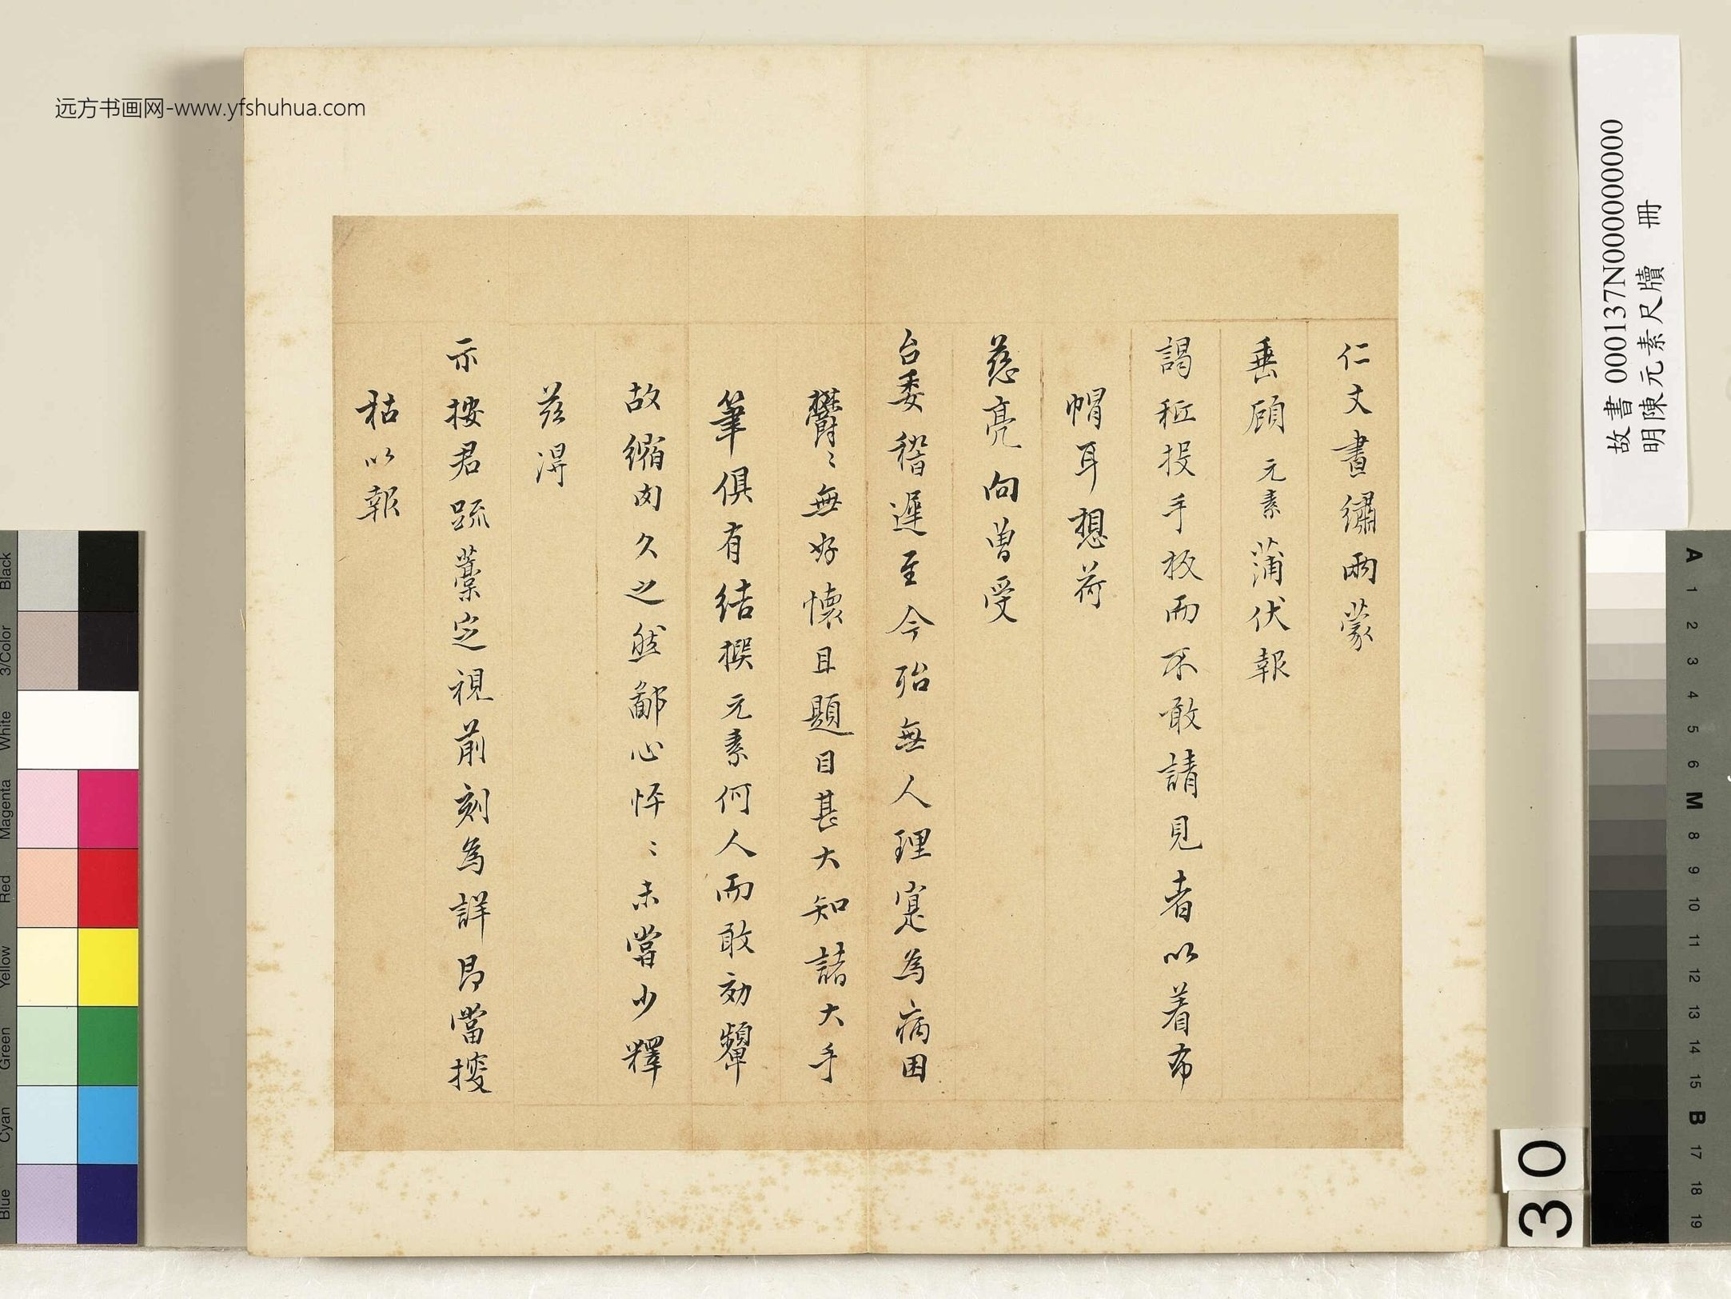 仁丈晝繡兩蒙
垂顧元素蒲伏報
謁秪投手板而不敢請見者以着布
帽耳想荷
慈亮向曾受
台委稽遲至今殆無人理寔為病困
欝〻無好懷且題目甚大知諸大手
筆俱有結撰元素何人而敢効顰
故縮肭久之然鄙心怦〻未嘗少釋
茲淂
示按君䟽藁定視前刻為詳即當搜
枯以報
远方书画网-www.yfshuhua.com
故書 000137N000000000
明陳元素尺牘 冊
30
Black
3/Color
White
Magenta
Red
Yellow
Green
Cyan
Blue
A
1
2
3
4
5
6
M
8
9
10
11
12
13
14
15
B
17
18
19